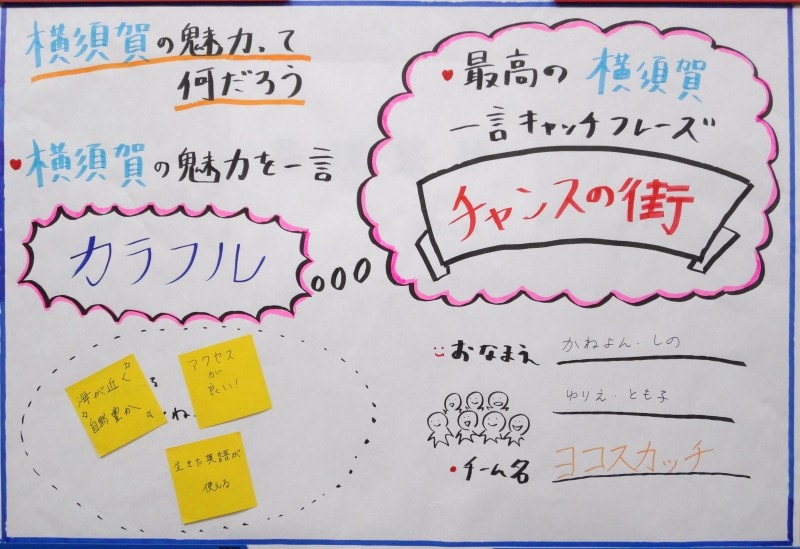 横須賀の魅力って
何だろう
横須賀の魅力を一言
カラフル
最高の 横須賀
一言キャッチフレーズ
チャンスの街
海が近く
自然豊か
アクセス
が
良い!
を
ね.
生きた英語が
使える
おなまえ
かねよん・しの
ゆりえ・とも子
チーム名
ヨコスカッチ